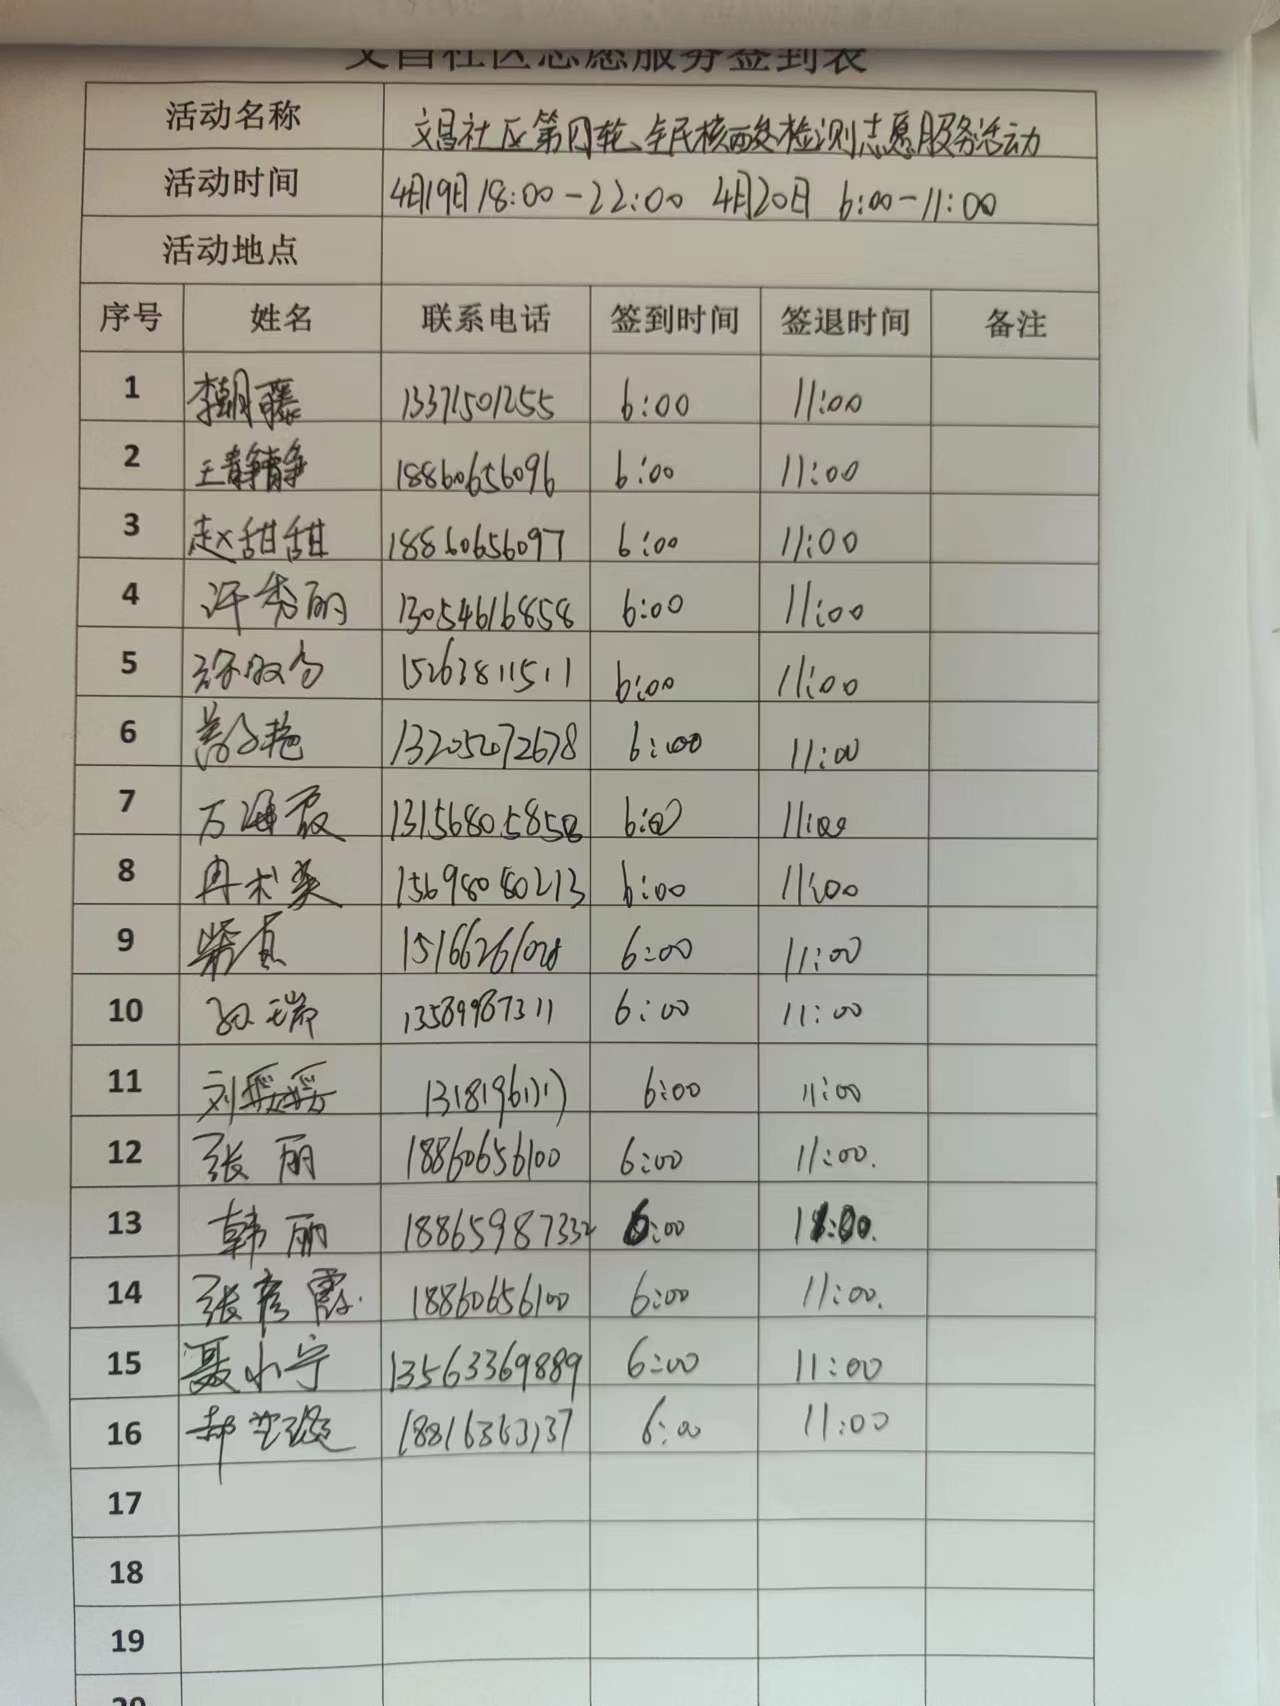 文昌社区志愿服务签到表
活动名称 文昌社区第四轮、全民核酸检测志愿服务活动
活动时间 4月19日18:00-22:00 4月20日 6:00-11:00
活动地点
序号 姓名 联系电话 签到时间 签退时间 备注
1 李朝藤 13371501255 6:00 11:00
2 王静静 18860656096 6:00 11:00
3 赵甜甜 18860656097 6:00 11:00
4 许秀丽 13054616858 6:00 11:00
5 15263811511 6:00 11:00
6 13205072678 6:00 11:00
7 万海霞 13156805858 6:00 11:00
8 冉术美 15698080213 6:00 11:00
9 柴真 15166261028 6:00 11:00
10 孙瑞 13589987311 6:00 11:00
11 刘媛媛 6:00 11:00
12 张丽 18860656100 6:00 11:00.
13 韩丽 18865987332 6:00 11:00.
14 张彦霞 18860656100 6:00 11:00.
15 聂小宁 13563369889 6:00 11:00
16 郝 18816363137 6:00 11:00
17
18
19
20